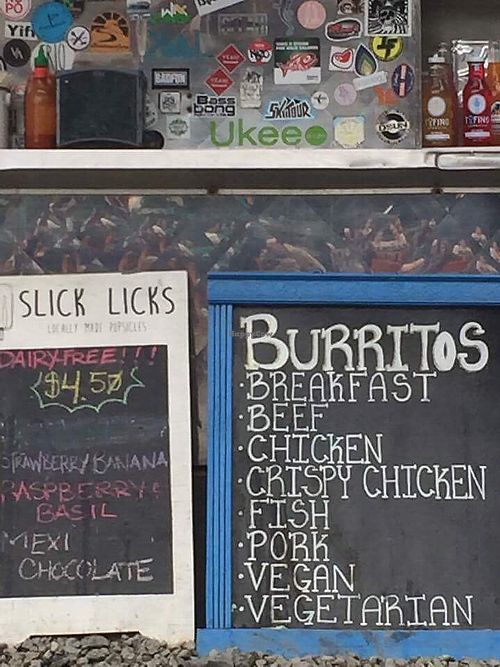 Yifi
BADFISH
Bass
Gong
SKITOUR
Ukee
TEASE
TEASE
SLICK LICKS
LOCALLY MADE POPSICLES
DAIRY-FREE!!!
$4.50
STRAWBERRY BANANA
RASPBERRY!
BASIL
MEXI
CHOCOLATE
BURRITOS
·BREAKFAST
·BEEF
·CHICKEN
·CRISPY CHICKEN
·FISH
·PORK
·VEGAN
·VEGETARIAN